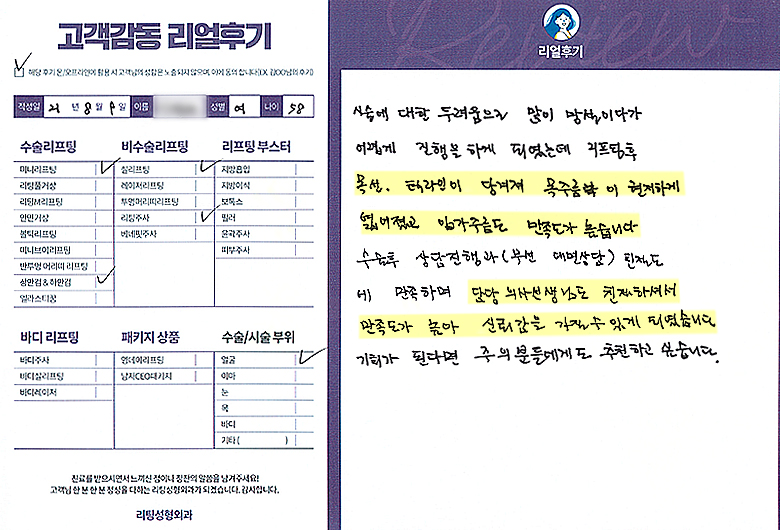 고객감동 리얼후기
해당 후기 온/오프라인에 활용 시 고객님의 성함은 노출되지 않으며, 이에 동의 합니다!(EX. 김OO님의 후기)
작성일 21년 8월 9일 이름 성별 여 나이 58
수술리프팅 비수술리프팅 리프팅 부스터
미니리프팅 실리프팅 지방흡입
리팅풀거상 레이저리프팅 지방이식
리팅M리프팅 투명어리띠리프팅 보톡스
안면거상 리팅주사 필러
볼턱리프팅 베네핏주사 윤곽주사
미니브이리프팅 피부주사
반투명 머리띠 리프팅
상안검 & 하안검
엘라스티꿈
바디 리프팅 패키지 상품 수술/시술 부위
바디주사 영데이리프팅 얼굴
바디실리프팅 남자CEO패키지 이마
바디레이저 눈
목
바디
기타 ( )
진료를 받으시면서 느끼신 점이나 칭찬의 말씀을 남겨주세요!
고객님 한 분 한 분 정성을 다하는 리팅성형외과가 되겠습니다. 감사합니다.
리팅성형외과
Review
리얼후기
수술에 대한 두려움으로 많이 망설이다가
어떻게 진행을 하게 되었는데 리프팅후
목선, 턱라인이 당겨져 목주름 이 현저하게
엷어졌고 입가주름도 만족도가 높습니다
수술후 상담진행과 (부선 대면상담) 친절도
에 만족하며 담당 의사선생님도 친절하셔서
만족도가 높아 신뢰감을 가질수 있게 되었습니다
기회가 된다면 주의 분들에게도 추천하고 싶습니다.